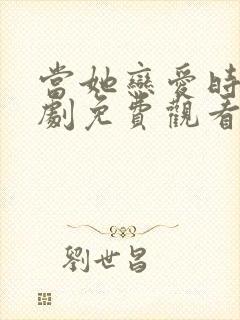 當她戀愛時
劇免費觀看
劉世昌